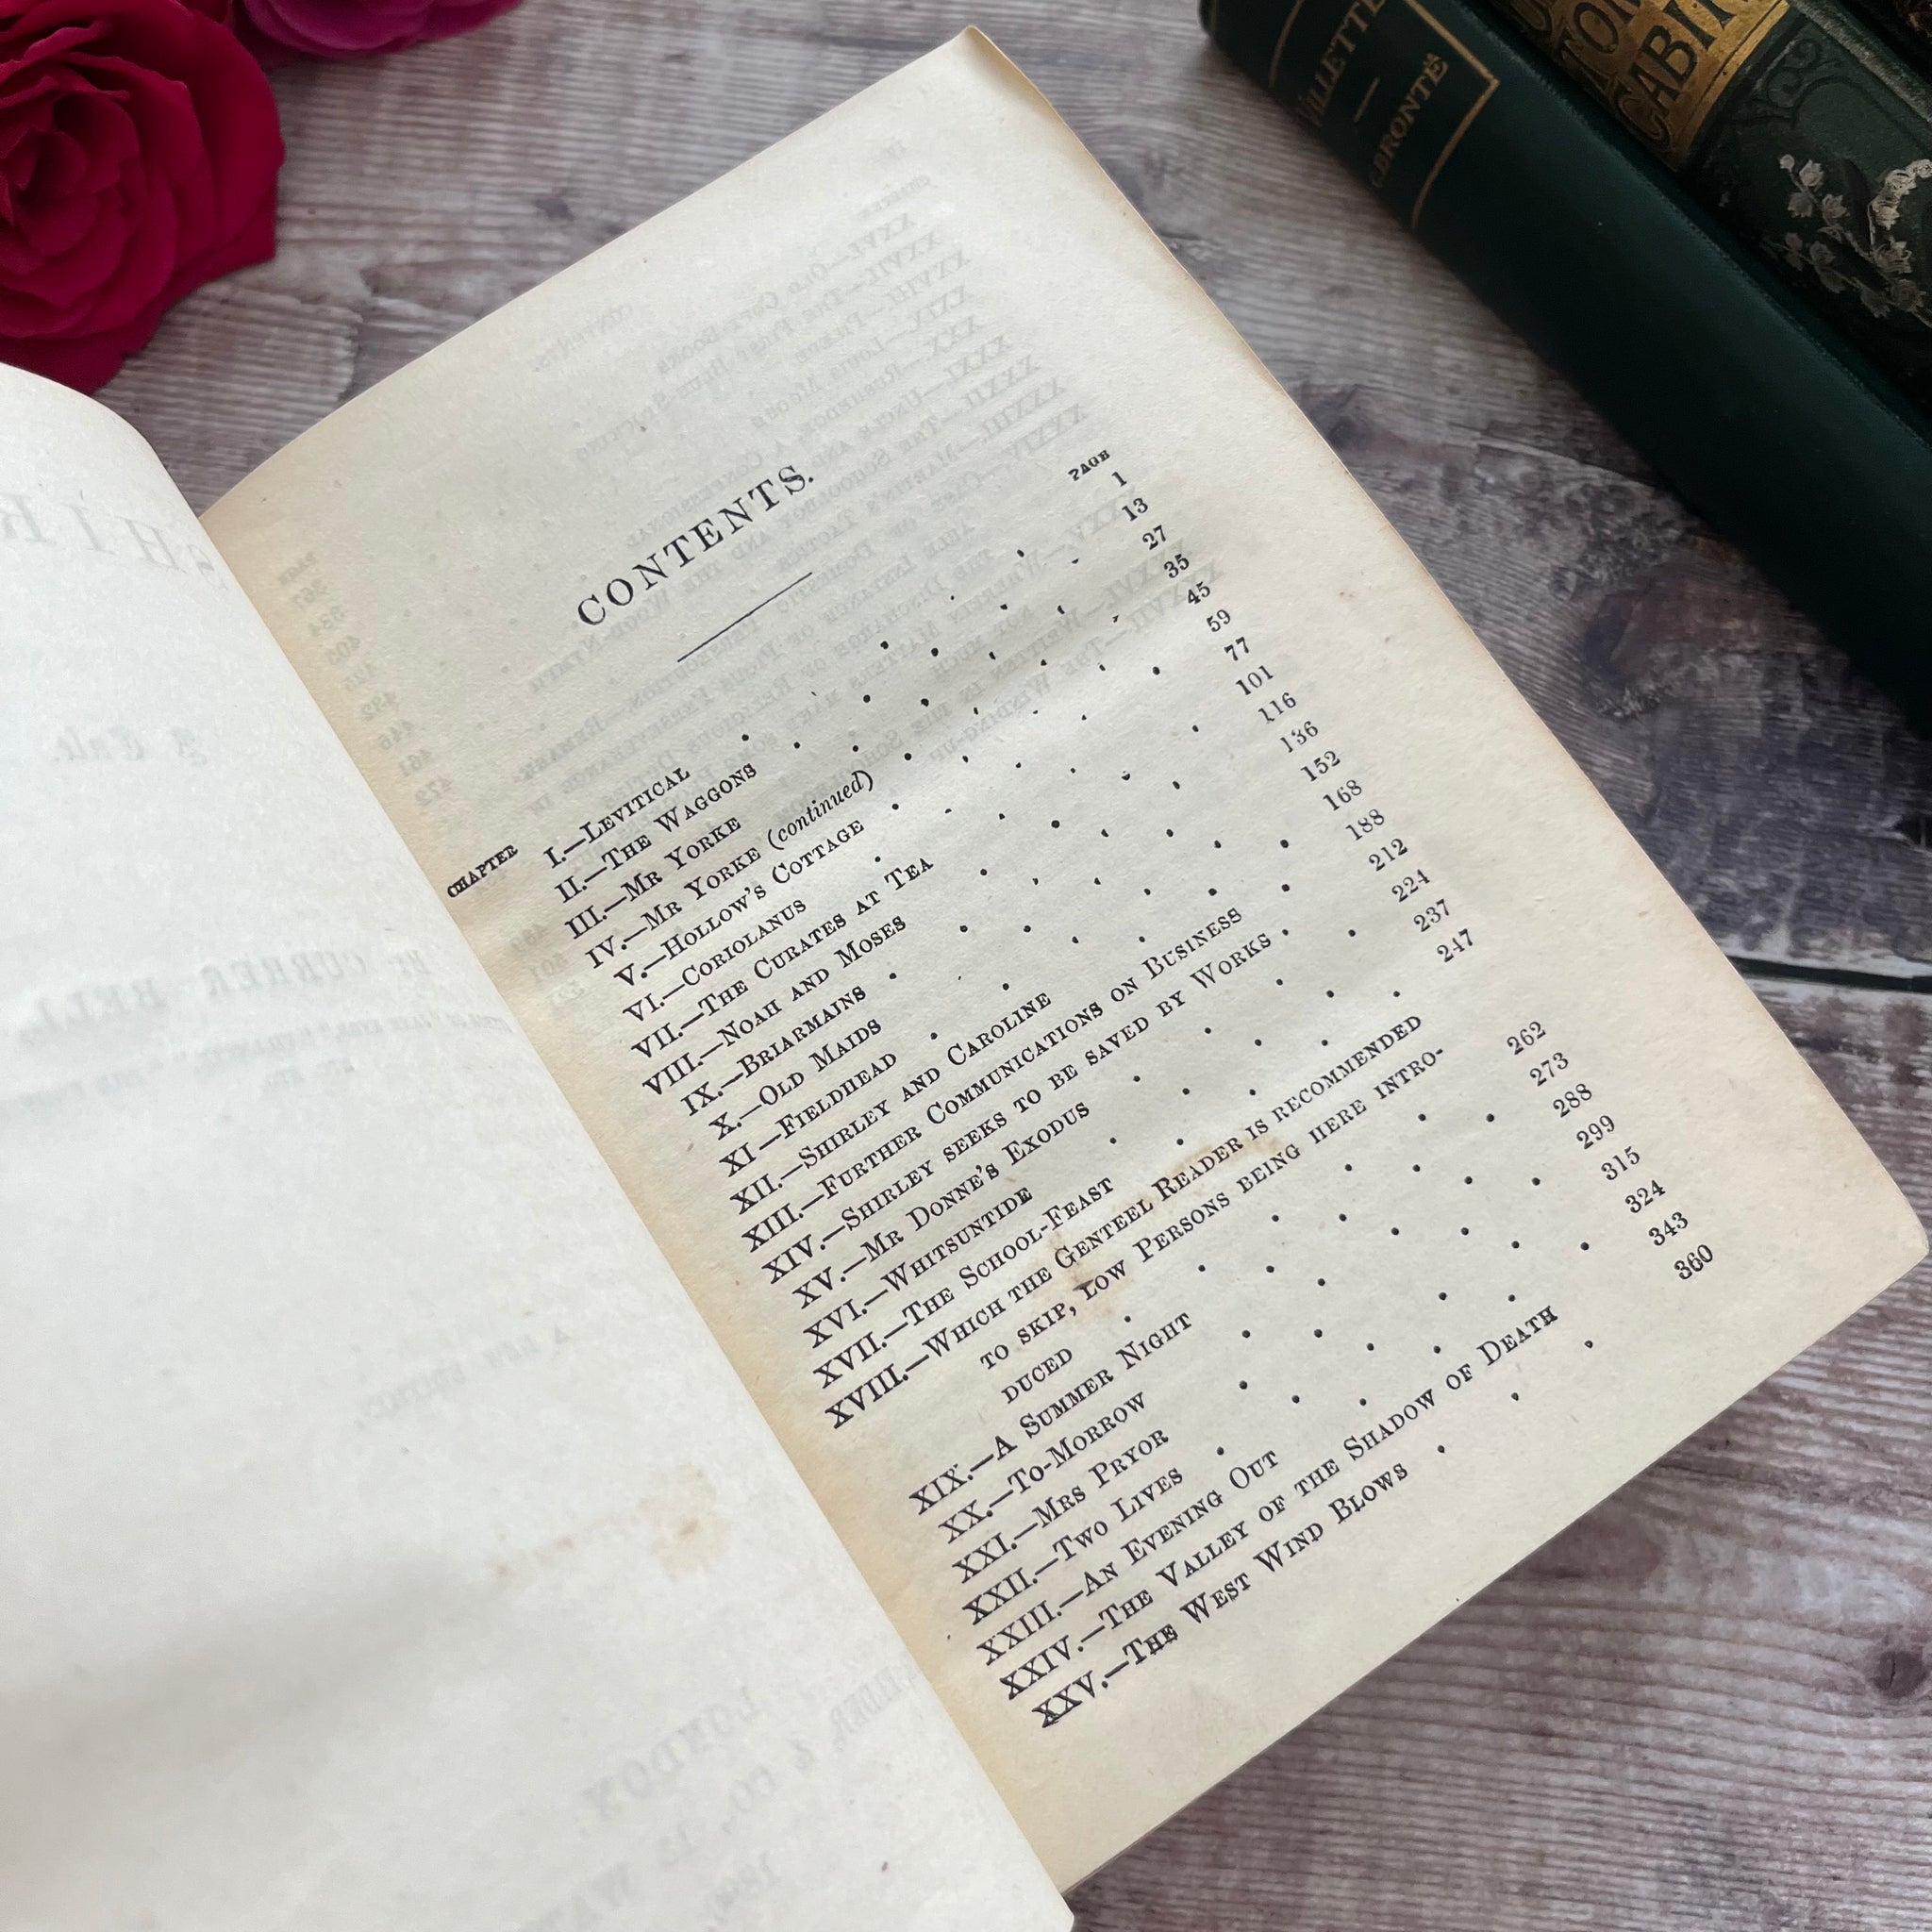 CONTENTS.
CHAPTER PAGE
I.—LEVITICAL 1
II.—THE WAGGONS 13
III.—MR YORKE 27
IV.—MR YORKE (continued) 35
V.—HOLLOW'S COTTAGE 45
VI.—CORIOLANUS 59
VII.—THE CURATES AT TEA 77
VIII.—NOAH AND MOSES 101
IX.—BRIARMAINS 116
X.—OLD MAIDS 136
XI—FIELDHEAD 152
XII.—SHIRLEY AND CAROLINE 168
XIII.—FURTHER COMMUNICATIONS ON BUSINESS 188
XIV.—SHIRLEY SEEKS TO BE SAVED BY WORKS 212
XV.—MR DONNE'S EXODUS 224
XVI.—WHITSUNTIDE 237
XVII.—THE SCHOOL-FEAST 247
XVIII.—WHICH THE GENTEEL READER IS RECOMMENDED
TO SKIP, LOW PERSONS BEING HERE INTRO-
DUCED 262
XIX.—A SUMMER NIGHT 273
XX.—TO-MORROW 288
XXI.—MRS PRYOR 299
XXII.—TWO LIVES 315
XXIII.—AN EVENING OUT 324
XXIV.—THE VALLEY OF THE SHADOW OF DEATH 343
XXV.—THE WEST WIND BLOWS 360
VILLETTE
C. BRONTË
TOM
CABIN